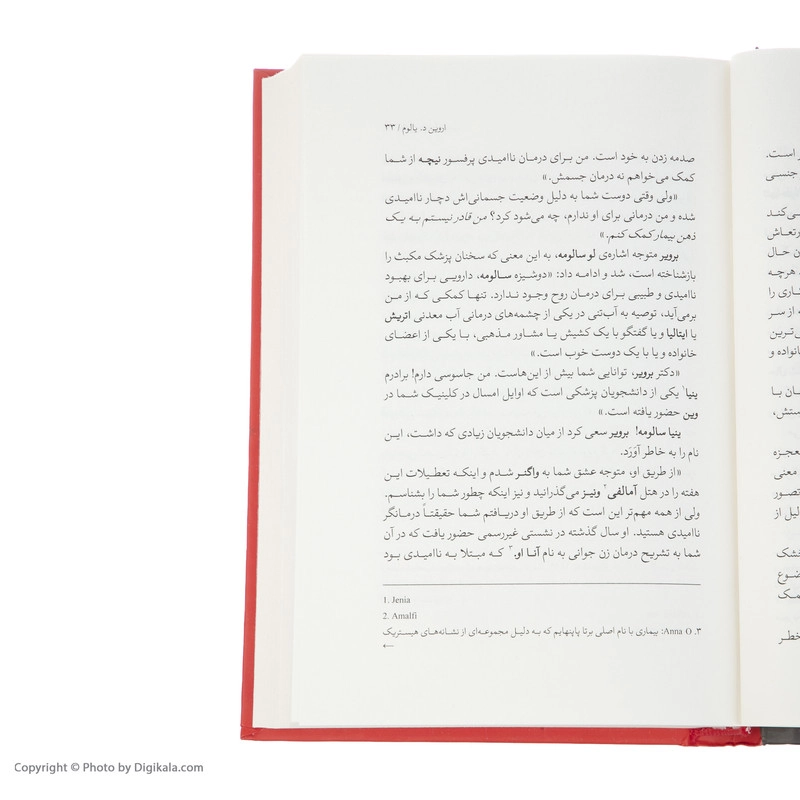 اروین د. یالوم / ۳۳
صدمه زدن به خود است. من برای درمان ناامیدی پرفسور نیچه از شما
کمک می‌خواهم نه درمان جسمش.»
«ولی وقتی دوست شما به دلیل وضعیت جسمانی‌اش دچار ناامیدی
شده و من درمانی برای او ندارم، چه می‌شود کرد؟ من قادر نیستم به یک
ذهن بیمار کمک کنم.»
برویر متوجه اشاره‌ی لو سالومه، به این معنی که سخنان پزشک مکبث را
بازشناخته است، شد و ادامه داد: «دوشیزه سالومه، دارویی برای بهبود
ناامیدی و طبیبی برای درمان روح وجود ندارد. تنها کمکی که از من
برمی‌آید، توصیه به آب‌تنی در یکی از چشمه‌های درمانی آب معدنی اتریش
یا ایتالیا و یا گفتگو با یک کشیش یا مشاور مذهبی، با یکی از اعضای
خانواده و یا با یک دوست خوب است.»
«دکتر برویر، توانایی شما بیش از این‌هاست. من جاسوسی دارم! برادرم
ینیا۱ یکی از دانشجویان پزشکی است که اوایل امسال در کلینیک شما در
وین حضور یافته است.»
ینیا سالومه! برویر سعی کرد از میان دانشجویان زیادی که داشت، این
نام را به خاطر آوَرَد.
«از طریق او، متوجه عشق شما به واگنر شدم و اینکه تعطیلات این
هفته را در هتل آمالفی۲ ونیز می‌گذرانید و نیز اینکه چطور شما را بشناسم.
ولی از همه مهم‌تر این است که از طریق او دریافتم شما حقیقتاً درمانگر
ناامیدی هستید. او سال گذشته در نشستی غیررسمی حضور یافت که در آن
شما به تشریح درمان زن جوانی به نام آنا او.۳ که مبتلا به ناامیدی بود
1. Jenia
2. Amalfi
۳. Anna O: بیماری با نام اصلی برتا پاپنهایم که به دلیل مجموعه‌ای از نشانه‌های هیستریک
←
ر است.
جنسی
ی‌کند
رتعاش
ن حال
هرچه
ناری را
ه از سر
ی‌ترین
انواده و
ان با
ستش،
عجزه
معنی
تصور
لیل از
خشک
ضوع
مک
خطر
Copyright © Photo by Digikala.com